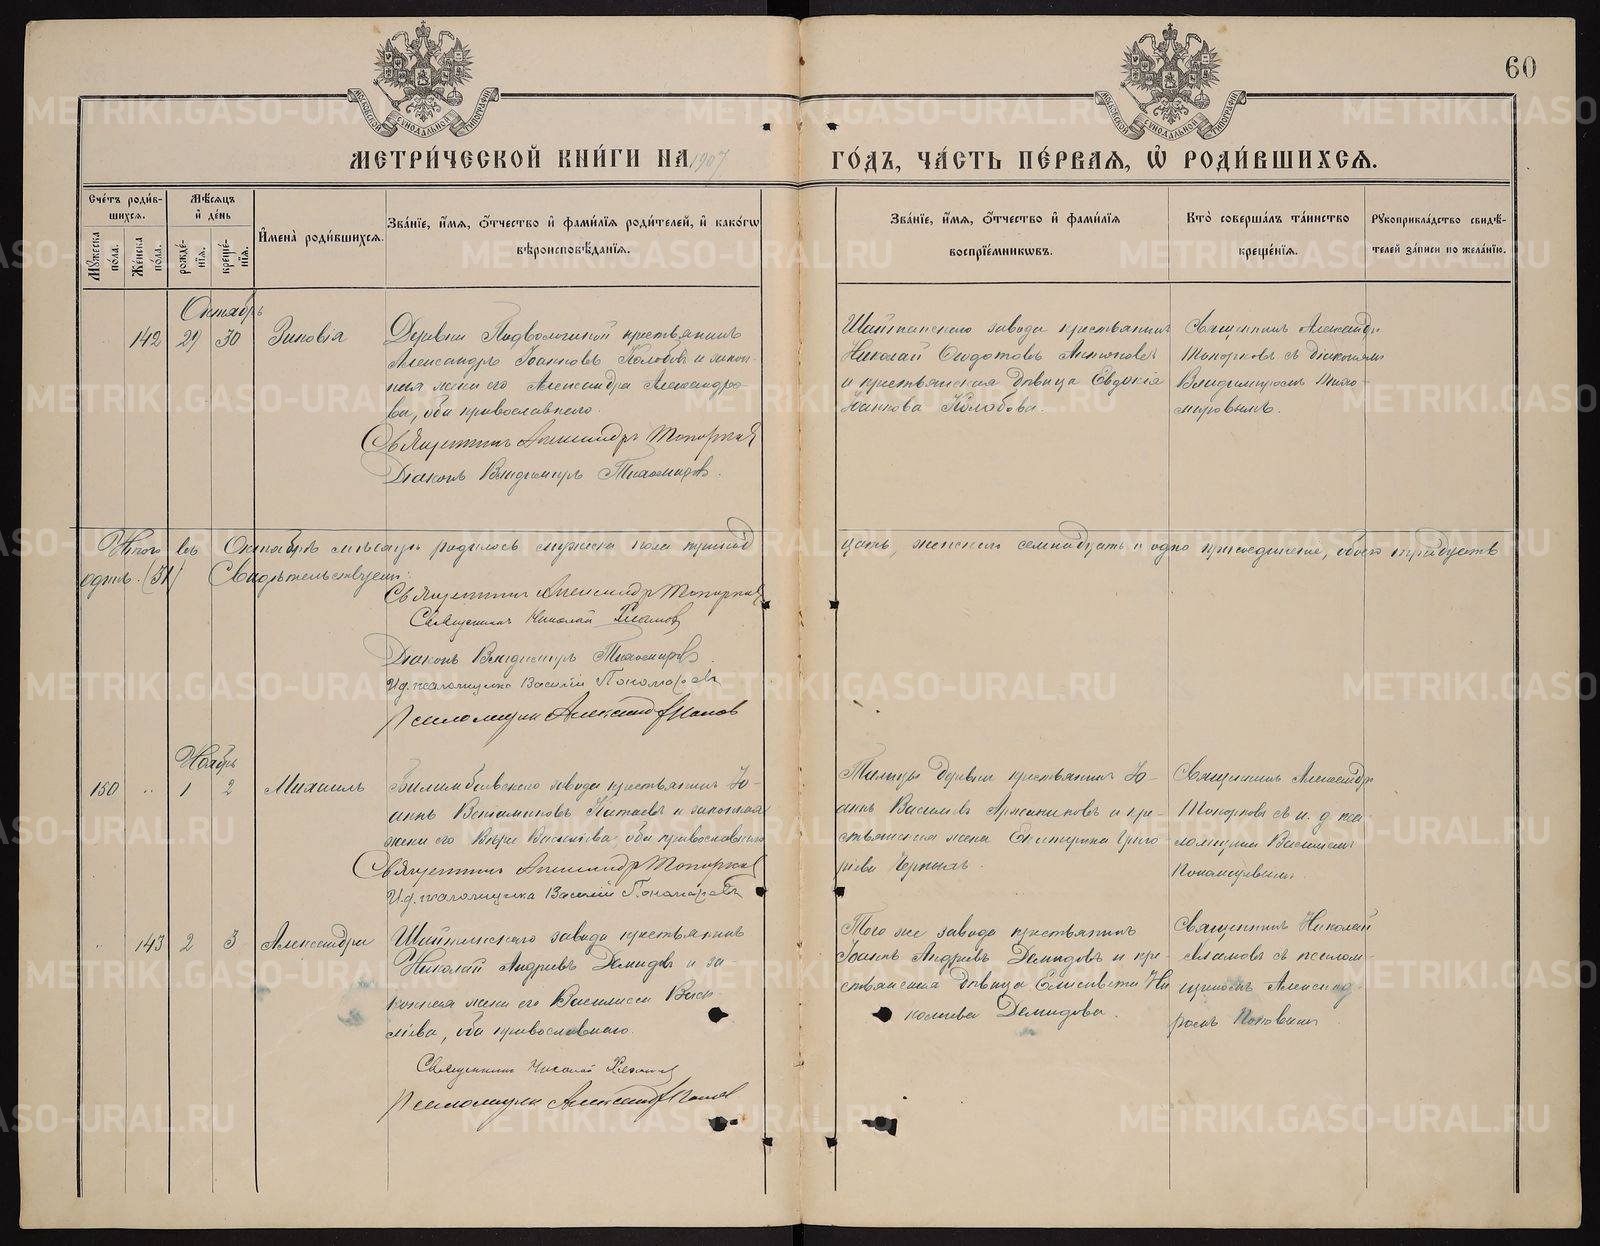 60
МОСКОВСКОЙ СѴНОДАЛЬНОЙ ТИПОГРАФІИ
МОСКОВСКОЙ СѴНОДАЛЬНОЙ ТИПОГРАФІИ
МЕТРИ́ЧЕСКОЙ КНИ́ГИ НА 1907 ГО́ДЪ, ЧА́СТЬ ПЕ́РВАѦ, Ѽ РОДИ́ВШИХСѦ.
Сче́тъ роди́в-
шихсѧ.
Мꙋ́жеска по́ла.
Же́нска по́ла.
Мѣ́сѧцъ
и҆ де́нь
рожде́-
нїѧ.
креще́-
нїѧ.
И҆мена̀ роди́вшихсѧ.
Зва́нїе, и҆́мѧ, ѻ҆́тчество и҆ фами́лїѧ роди́телей, и҆ како́гѡ
вѣроисповѣ́данїѧ.
Зва́нїе, и҆́мѧ, ѻ҆́тчество и҆ фами́лїѧ
воспрїе́мникѡвъ.
Кто̀ соверша́лъ та́инство
креще́нїѧ.
Рꙋкоприкла́дство свидѣ́-
телей за́писи по жела́нїю.
Октябрь
142 29 30 Зиновія
Деревни Подволошной крестьянинъ
Александръ Іоанновъ Колобовъ и закон-
ная жена его Александра Александро-
ва, оба православнаго.
Священникъ Александръ Топорковъ
Діаконъ Владиміръ Тихомировъ.
Шайтанскаго завода крестьянинъ
Николай Ѳеодотовъ
и крестьянская дѣвица Евдокія
Іоаннова Колобова.
Священникъ Александръ
Топорковъ съ діакономъ
Владиміромъ Тихо-
мировымъ.
Итого въ Октябрѣ мѣсяцѣ родилось мужеска пола тринад
цать, женскаго семнадцать и одно присоединеніе, обоего тридцать
одинъ. (31) Свидѣтельствуемъ:
Священникъ Александръ Топорковъ
Священникъ Николай
Діаконъ Владиміръ Тихомировъ.
И.д. псаломщика Василій Пономаревъ
Псаломщикъ Александръ Поповъ
Ноябрь
150 " 1 2 Михаилъ
Билимбаевскаго завода крестьянинъ Іо-
аннъ Китаевъ и законная
жена его Вѣра Васильева, оба православнаго
Священникъ Александръ Топорковъ
И.д. псаломщика Василій Пономаревъ
Талицы деревни крестьянинъ Іо-
аннъ Васильевъ и кре-
стьянская жена Екатерина Григо-
рьева
Священникъ Александръ
Топорковъ съ и. д. пса-
ломщика Василіемъ
Пономаревымъ.
" 143 2 3 Александра
Шайтанскаго завода крестьянинъ
Николай Андреевъ Демидовъ и за-
конная жена его Василисса Васи-
льева, оба православнаго.
Священникъ Николай
Псаломщикъ Александръ Поповъ
Того же завода крестьянинъ
Іоаннъ Андреевъ Демидовъ и кре-
стьянская дѣвица Елисавета Ни
колаева Демидова.
Священникъ Николай
съ псалом-
щикомъ Александ
ромъ Поповымъ
METRIKI.GASO-URAL.RU